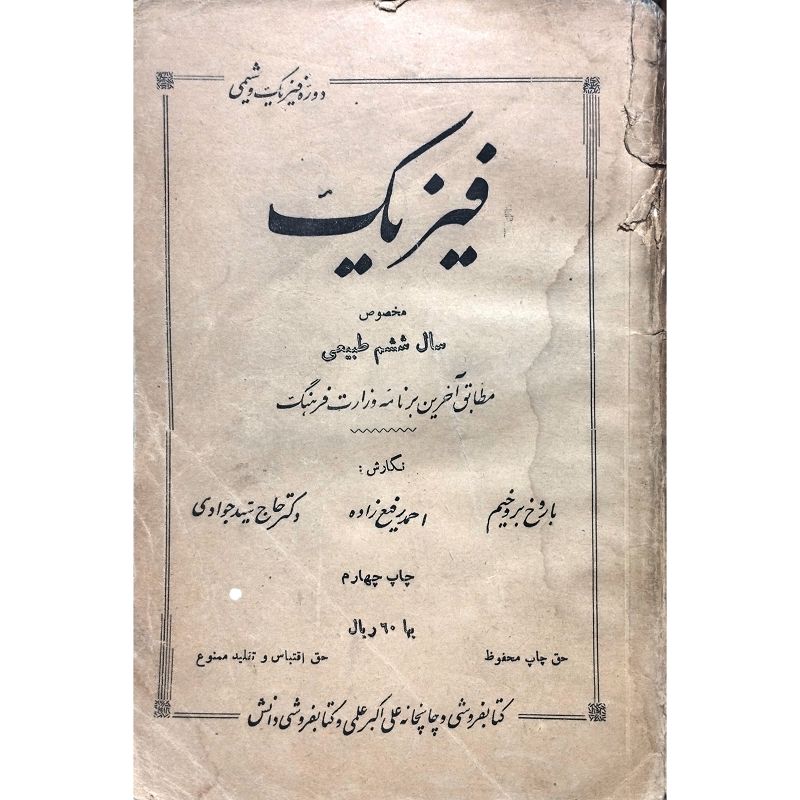 دوره فیزیک و شیمی
فیزیک
مخصوص
سال ششم طبیعی
مطابق آخرین برنامه وزارت فرهنگ
نگارش :
باروخ بروخیم احمد رفیع زاده دکتر حاج سید جوادی
چاپ چهارم
بها ۶۰ ریال
حق چاپ محفوظ حق اقتباس و تقلید ممنوع
کتابفروشی و چاپخانه علی اکبر علمی و کتابفروشی دانش